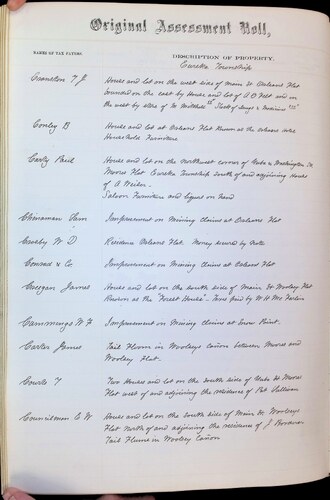 Original Assessment Roll,
NAMES OF TAX PAYERS.
DESCRIPTION OF PROPERTY.
Eureka Township
Cranston T J
House and lot on the west side of main St Orleans Flat
bounded on the east by House and lot of A O and on
the west by store of Wm Stock of Drugs & Medicine
Conley B
House and lot at Orleans Flat Known as the
Household Furniture
Early Paul
House and lot on the Northwest corner of & Washington St
Moores Flat Eureka Township South of and adjoining House
of A Weiler.
Saloon Furniture and Liquor on hand
Chinaman Ham
Improvement on Mining claims at Orleans Flat
Crosby W D
Residence Orleans Flat. Money secured by Note
Conrad & Co.
Improvement on Mining Claims at Orleans Flat
Creegan James
House and lot on the South side of Main St Woolsey Flat
Known as the "Forest House". Taxes paid by W H Mc Farlin
Cummings W F
Improvement on Mining claims at Snow Point.
Carter James
Tail Flume in Woolseys Cañon between Moores and
Woolsey Flat.
Courts T
Two Houses and lot on the South side of St Moores
Flat west of and adjoining the residence of Pat Sullivan
Councilman C W
House and lot on the South side of Main St Woolseys
Flat North of and adjoining the residence of J
Tail Flume in Woolsey Cañon